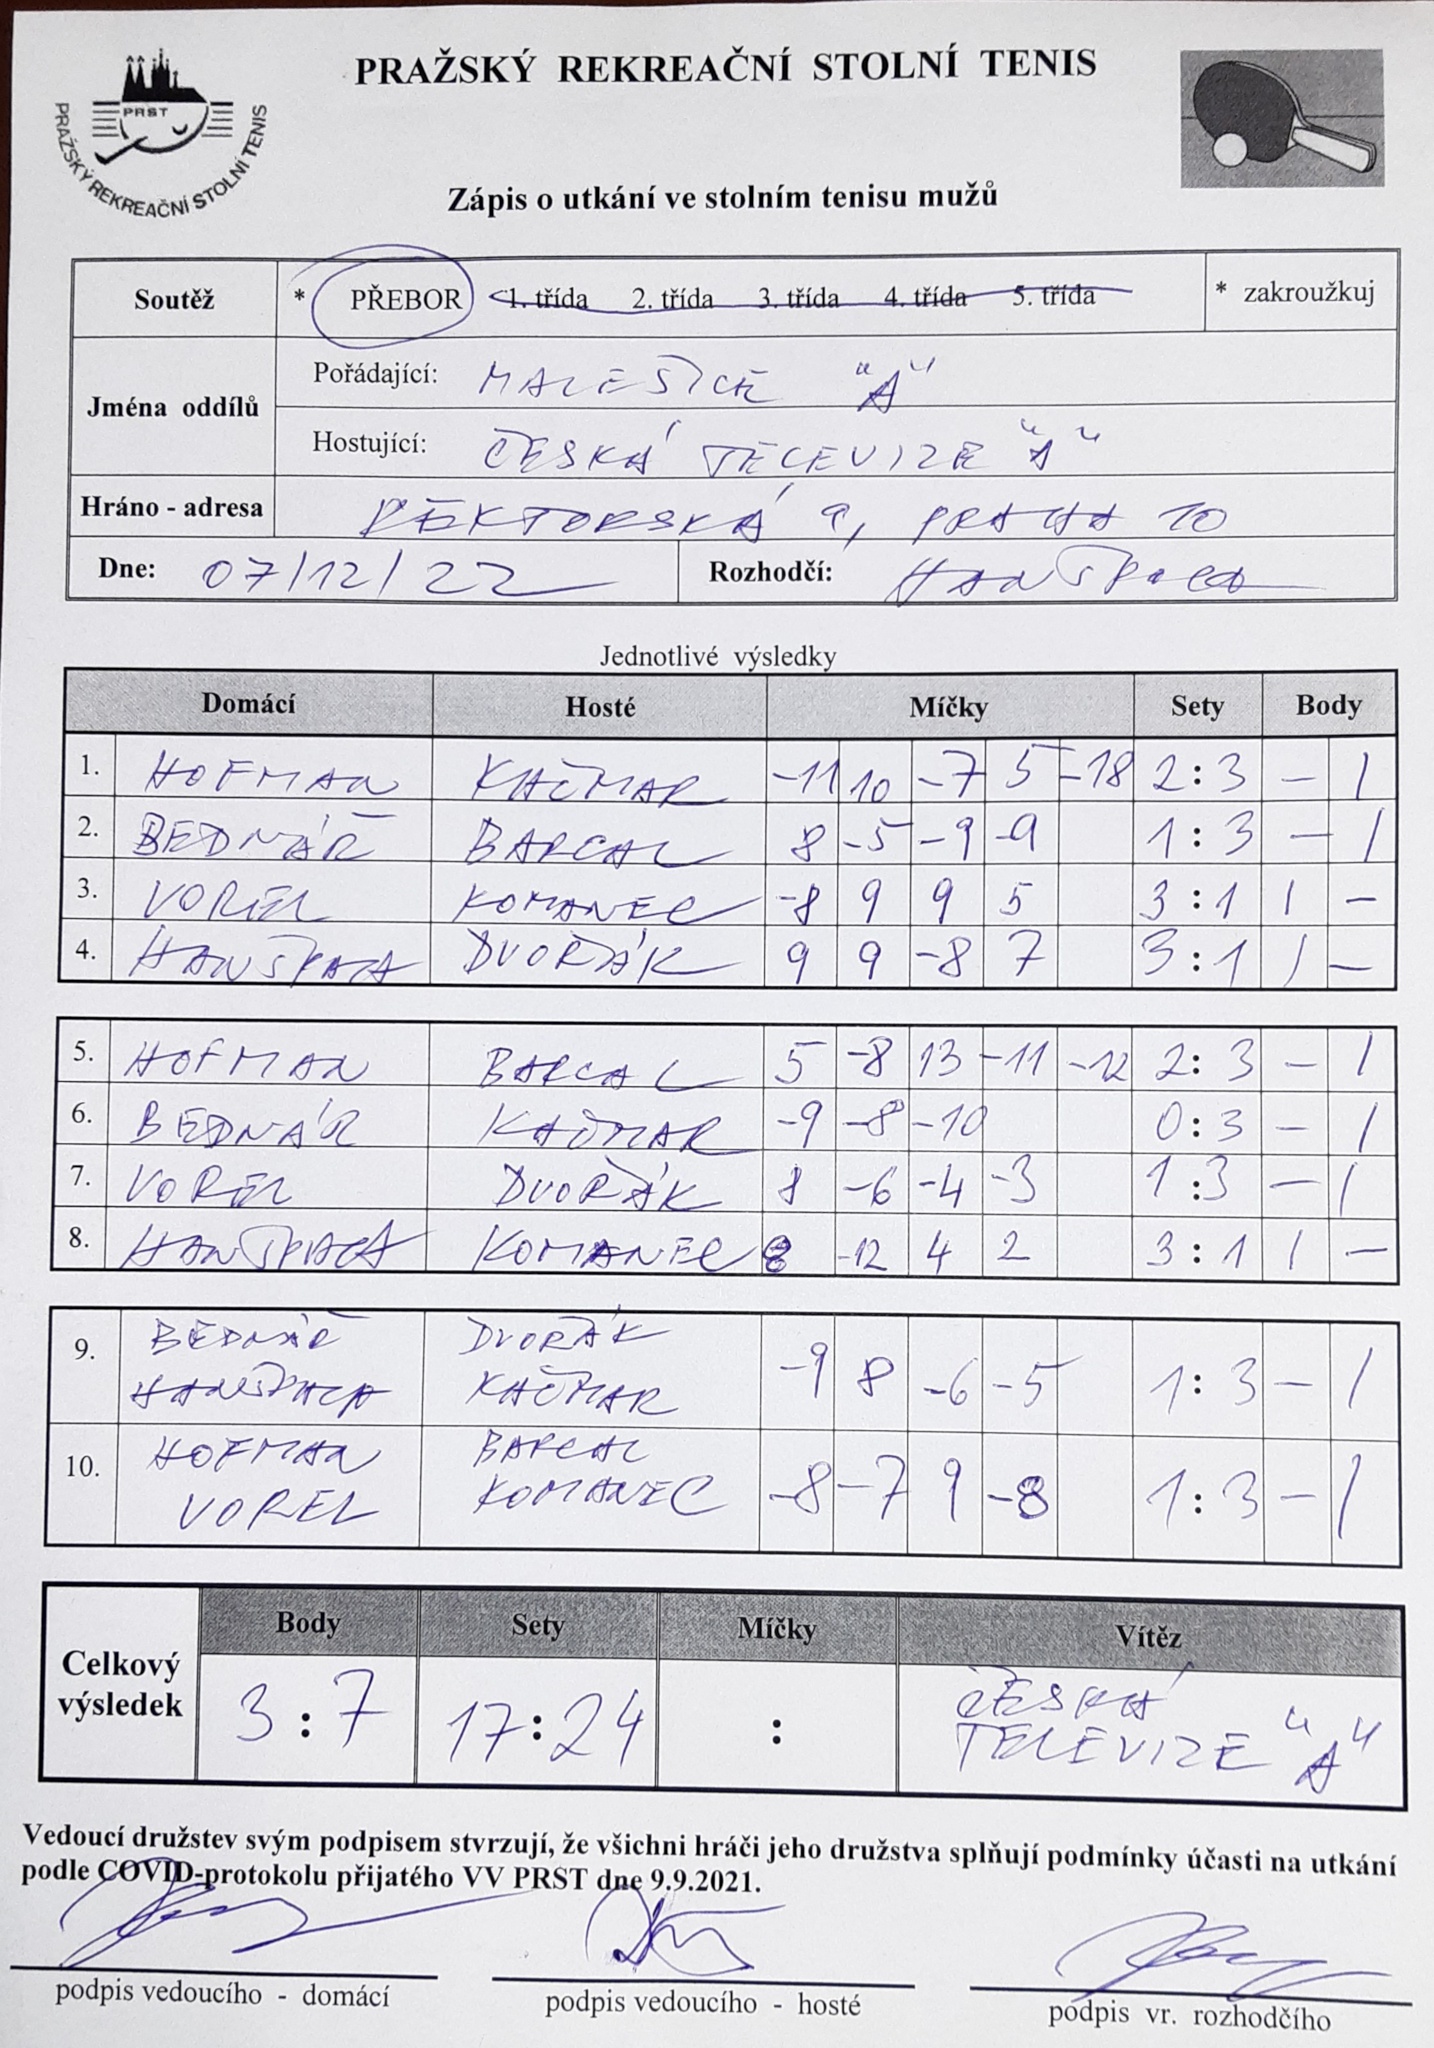 PRAŽSKÝ REKREAČNÍ STOLNÍ TENIS
PRST
PRAŽSKÝ REKREAČNÍ STOLNÍ TENIS
Zápis o utkání ve stolním tenisu mužů
Soutěž * PŘEBOR 1. třída 2. třída 3. třída 4. třída 5. třída * zakroužkuj
Jména oddílů
Pořádající: MALEŠICE "A"
Hostující: ČESKÁ TELEVIZE "A"
Hráno - adresa REKTORSKÁ 9, PRAHA 10
Dne: 07/12/22 Rozhodčí: HANŠPACH
Jednotlivé výsledky
Domácí Hosté Míčky Sety Body
1. HOFMAN KAČMAR -11 10 -7 5 -18 2:3 - 1
2. BEDNÁŘ BARCAL 8 -5 -9 -9 1:3 - 1
3. VOREL KOMANEC -8 9 9 5 3:1 1 -
4. HANŠPACH DVOŘÁK 9 9 -8 7 3:1 1 -
5. HOFMAN BARCAL 5 -8 13 -11 -12 2:3 - 1
6. BEDNÁŘ KAČMAR -9 -8 -10 0:3 - 1
7. VOREL DVOŘÁK 8 -6 -4 -3 1:3 - 1
8. HANŠPACH KOMANEC 8 -12 4 2 3:1 1 -
9. BEDNÁŘ DVOŘÁK
HANŠPACH KAČMAR -9 8 -6 -5 1:3 - 1
10. HOFMAN BARCAL
VOREL KOMANEC -8 -7 9 -8 1:3 - 1
Celkový výsledek
Body Sety Míčky Vítěz
3:7 17:24 : ČESKÁ
TELEVIZE "A"
Vedoucí družstev svým podpisem stvrzují, že všichni hráči jeho družstva splňují podmínky účasti na utkání
podle COVID-protokolu přijatého VV PRST dne 9.9.2021.
podpis vedoucího - domácí podpis vedoucího - hosté podpis vr. rozhodčího